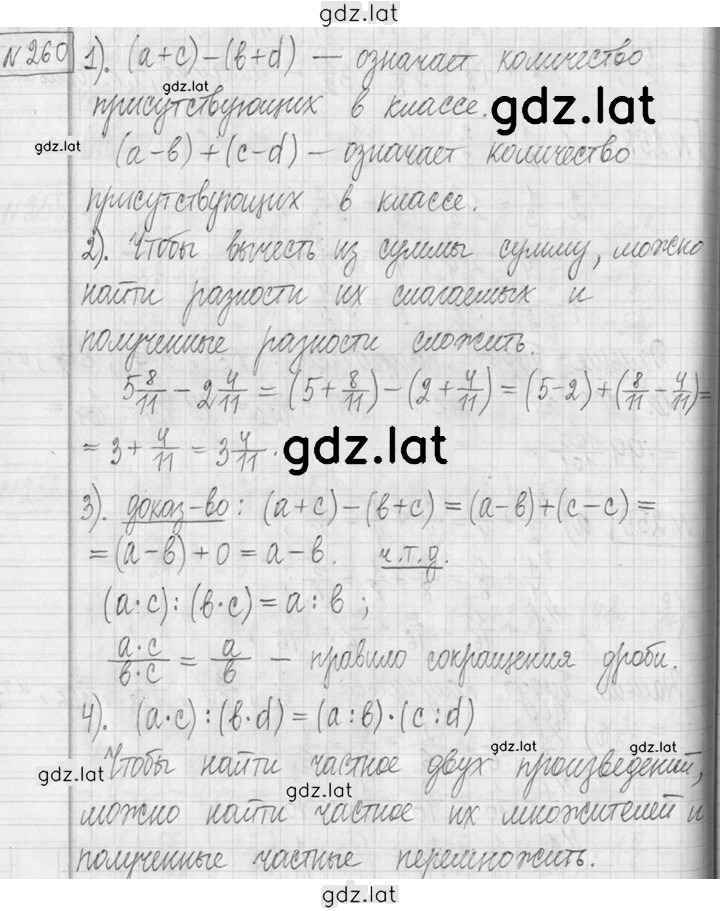 gdz.lat
№260 1). (a+c)-(в+d) — означает количество
gdz.lat
присутствующих в классе.
gdz.lat
gdz.lat
(a-в)+(c-d) — означает количество
присутствующих в классе.
2). Чтобы вычесть из суммы сумму, можно
найти разности их слагаемых и
полученные разности сложить.
5 8/11 - 2 4/11 = (5+8/11)-(2+4/11) = (5-2)+(8/11-4/11)=
= 3+4/11 = 3 4/11.
gdz.lat
3). доказ-во: (a+c)-(в+c)=(a-в)+(c-c)=
=(a-в)+0=a-в. ч.т.д.
(a·c):(в·c)=a:в;
a·c/в·c = a/в — правило сокращения дроби.
4). (a·c):(в·d)=(a:в)·(c:d)
gdz.lat
gdz.lat
Чтобы найти частное двух произведений,
gdz.lat
gdz.lat
можно найти частное их множителей и
полученные частные перемножить.
gdz.lat